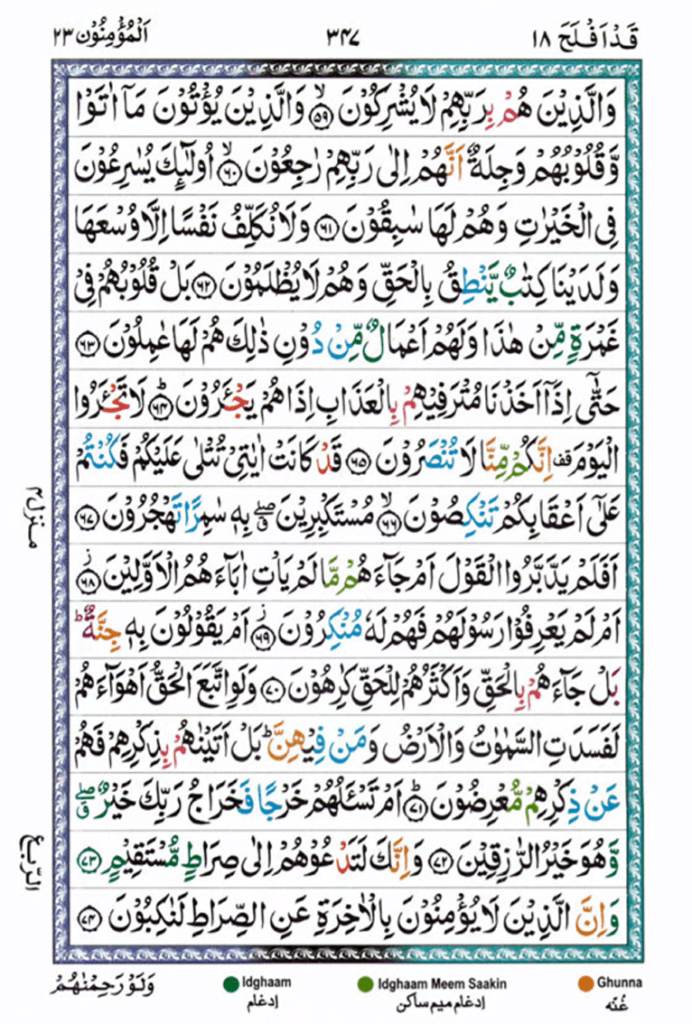 قَدْ اَفْلَحَ ١٨
٣٤٧
اَلْمُؤْمِنُوْن ٢٣
وَالَّذِيْنَ هُمْ بِرَبِّهِمْ لَا يُشْرِكُوْنَ ۙ‏﴿۵۹﴾ وَالَّذِيْنَ يُؤْتُوْنَ مَاۤ اٰتَوْا
وَّ قُلُوْبُهُمْ وَجِلَةٌ اَنَّهُمْ اِلٰى رَبِّهِمْ رٰجِعُوْنَ ۙ‏﴿۶۰﴾ اُولٰٓٮِٕكَ يُسٰرِعُوْنَ
فِى الْخَيْرٰتِ وَهُمْ لَهَا سٰبِقُوْنَ ﴿۶۱﴾ وَلَا نُكَلِّفُ نَفْسًا اِلَّا وُسْعَهَا
وَلَدَيْنَا كِتٰبٌ يَّنْطِقُ بِالْحَقِّ وَهُمْ لَا يُظْلَمُوْنَ ﴿۶۲﴾ بَلْ قُلُوْبُهُمْ فِىْ
غَمْرَةٍ مِّنْ هٰذَا وَلَهُمْ اَعْمَالٌ مِّنْ دُوْنِ ذٰلِكَ هُمْ لَهَا عٰمِلُوْنَ ﴿۶۳﴾
حَتّٰٓى اِذَاۤ اَخَذْنَا مُتْرَفِيْهِمْ بِالْعَذَابِ اِذَا هُمْ يَجْئَرُوْنَ ؕ‏﴿۶۴﴾ لَا تَجْئَرُوا
الْيَوْمَ قف اِنَّكُمْ مِّنَّا لَا تُنْصَرُوْنَ ﴿۶۵﴾ قَدْ كَانَتْ اٰيٰتِىْ تُتْلٰى عَلَيْكُمْ فَكُنْتُمْ
عَلٰٓى اَعْقَابِكُمْ تَنْكِصُوْنَ ۙ‏﴿۶۶﴾ مُسْتَكْبِرِيْنَ ۖق بِهٖ سٰمِرًا تَهْجُرُوْنَ ﴿۶۷﴾
اَفَلَمْ يَدَّبَّرُوا الْقَوْلَ اَمْ جَآءَهُمْ مَّا لَمْ يَاْتِ اٰبَآءَهُمُ الْاَوَّلِيْنَ ز﴿۶۸﴾
اَمْ لَمْ يَعْرِفُوْا رَسُوْلَهُمْ فَهُمْ لَهٗ مُنْكِرُوْنَ ز﴿۶۹﴾ اَمْ يَقُوْلُوْنَ بِهٖ جِنَّةٌ ؕ
بَلْ جَآءَهُمْ بِالْحَقِّ وَاَكْثَرُهُمْ لِلْحَقِّ كٰرِهُوْنَ ﴿۷۰﴾ وَلَوِ اتَّبَعَ الْحَقُّ اَهْوَآءَهُمْ
لَفَسَدَتِ السَّمٰوٰتُ وَالْاَرْضُ وَمَنْ فِيْهِنَّ ؕ بَلْ اَتَيْنٰهُمْ بِذِكْرِهِمْ فَهُمْ
عَنْ ذِكْرِهِمْ مُّعْرِضُوْنَ ؕ‏﴿۷۱﴾ اَمْ تَسْئَلُهُمْ خَرْجًا فَخَرَاجُ رَبِّكَ خَيْرٌ ۖق
وَّهُوَ خَيْرُ الرّٰزِقِيْنَ ﴿۷۲﴾ وَاِنَّكَ لَتَدْعُوْهُمْ اِلٰى صِرَاطٍ مُّسْتَقِيْمٍ ﴿۷۳﴾
وَاِنَّ الَّذِيْنَ لَا يُؤْمِنُوْنَ بِالْاٰخِرَةِ عَنِ الصِّرَاطِ لَنٰكِبُوْنَ ﴿۷۴﴾
منزل ٤
الرّبع
وَلَوْ رَحِمْنٰهُمْ
Idghaam
ادغام
Idghaam Meem Saakin
ادغام میم ساکن
Ghunna
غُنّه